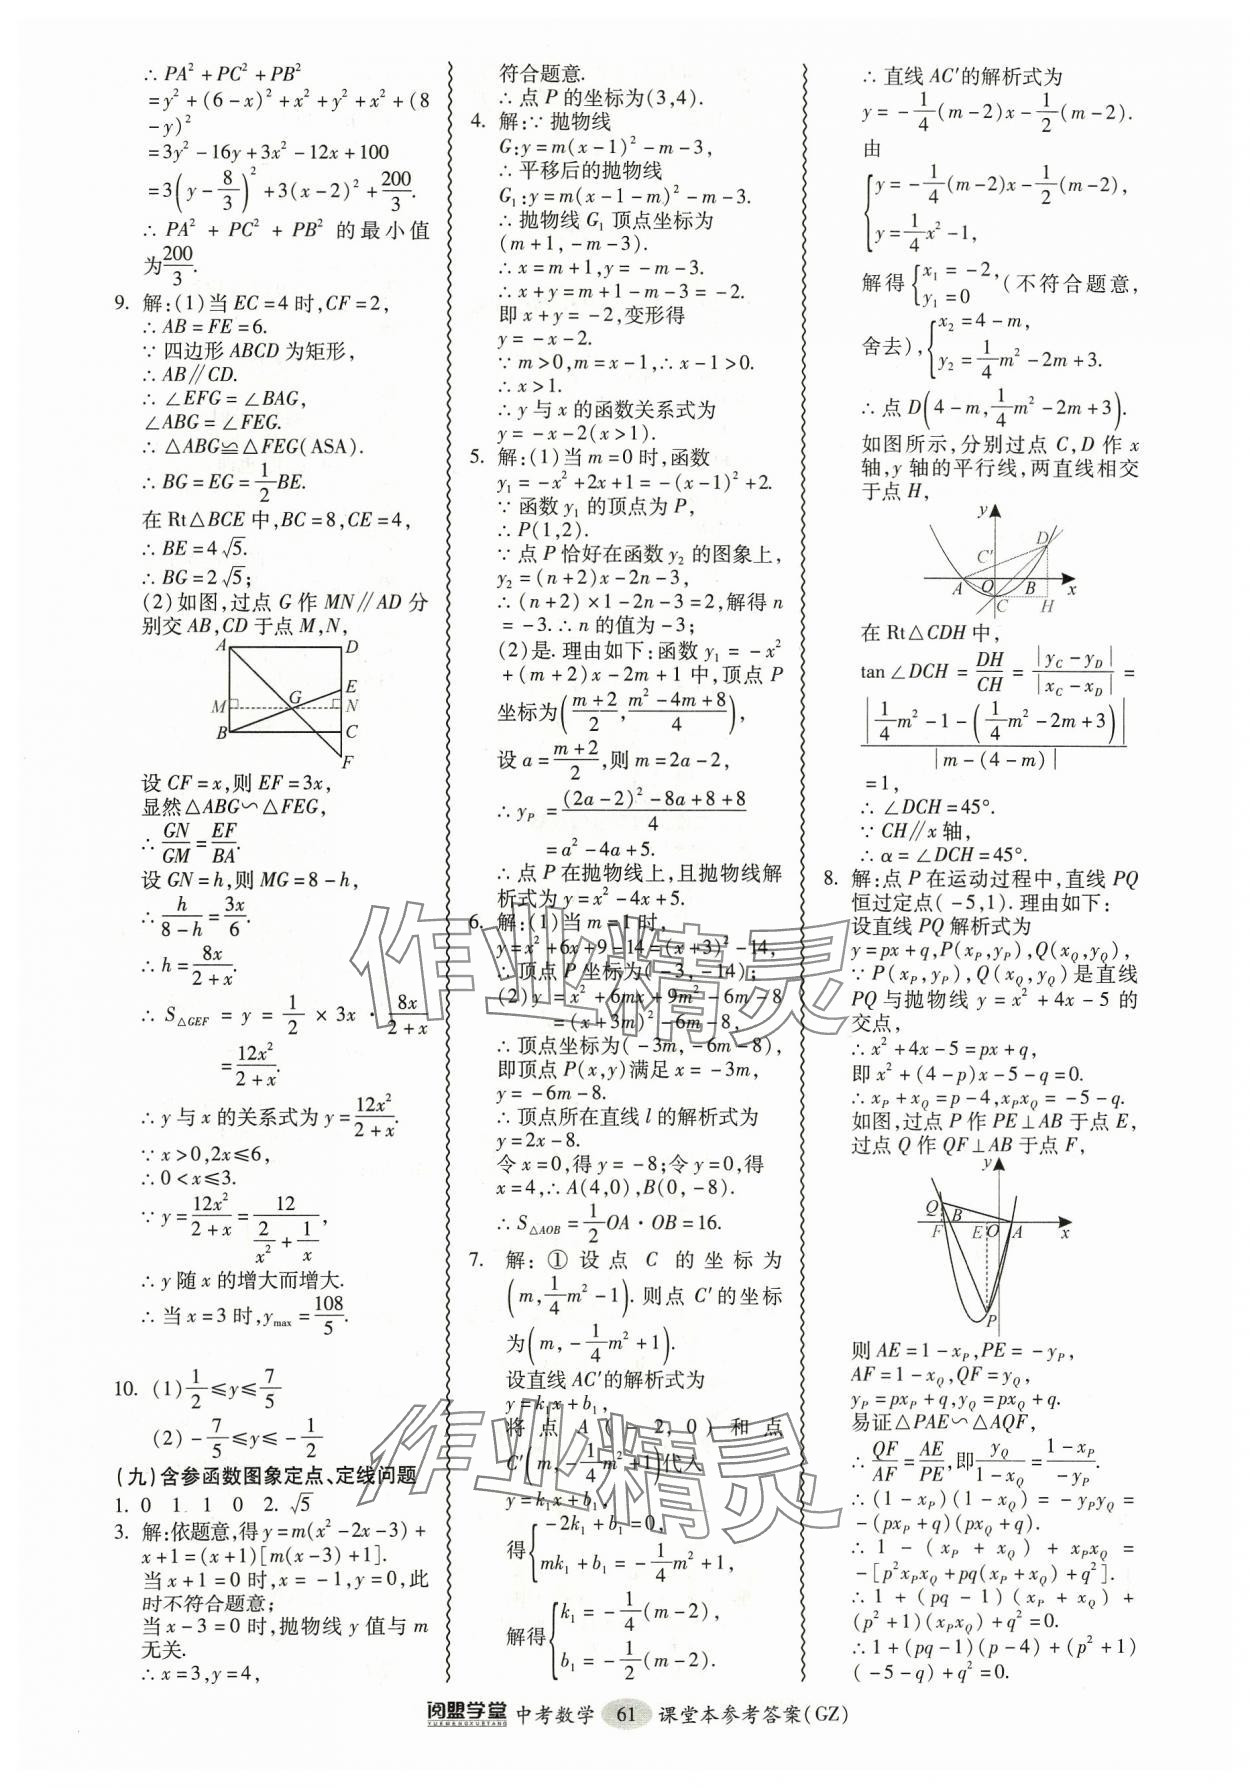 ∴ PA² + PC² + PB²
= y² + (6 - x)² + x² + y² + x² + (8
- y)²
= 3y² - 16y + 3x² - 12x + 100
= 3(y - 8/3)² + 3(x - 2)² + 200/3.
∴ PA² + PC² + PB² 的最小值
为200/3.
9. 解:(1)当 EC = 4 时, CF = 2,
∴ AB = FE = 6.
∵ 四边形 ABCD 为矩形,
∴ AB∥CD.
∴ ∠EFG = ∠BAG,
∠ABG = ∠FEG.
∴ △ABG≌△FEG(ASA).
∴ BG = EG = 1/2 BE.
在 Rt△BCE 中, BC = 8, CE = 4,
∴ BE = 4√5.
∴ BG = 2√5;
(2)如图,过点 G 作 MN∥AD 分
别交 AB, CD 于点 M, N,
A D
E
M G N
B C
F
设 CF = x,则 EF = 3x,
显然△ABG∽△FEG,
∴ GN/GM = EF/BA.
设 GN = h,则 MG = 8 - h,
∴ h/(8 - h) = 3x/6.
∴ h = 8x/(2 + x).
∴ S△GEF = y = 1/2 × 3x · 8x/(2 + x)
= 12x²/(2 + x).
∴ y 与 x 的关系式为 y = 12x²/(2 + x).
∵ x > 0, 2x ≤ 6,
∴ 0 < x ≤ 3.
∵ y = 12x²/(2 + x) = 12/(2/x² + 1/x),
∴ y 随 x 的增大而增大.
∴ 当 x = 3 时, y max = 108/5.
10. (1) 1/2 ≤ y ≤ 7/5
(2) - 7/5 ≤ y ≤ - 1/2
(九)含参函数图象定点、定线问题
1. 0 1 1 0 2. √5
3. 解:依题意,得 y = m(x² - 2x - 3) +
x + 1 = (x + 1)[m(x - 3) + 1].
当 x + 1 = 0 时, x = - 1, y = 0,此
时不符合题意;
当 x - 3 = 0 时,抛物线 y 值与 m
无关.
∴ x = 3, y = 4,
符合题意.
∴ 点 P 的坐标为(3,4).
4. 解:∵ 抛物线
G: y = m(x - 1)² - m - 3,
∴ 平移后的抛物线
G₁: y = m(x - 1 - m)² - m - 3.
∴ 抛物线 G₁ 顶点坐标为
(m + 1, - m - 3).
∴ x = m + 1, y = - m - 3.
∴ x + y = m + 1 - m - 3 = - 2.
即 x + y = - 2,变形得
y = - x - 2.
∵ m > 0, m = x - 1, ∴ x - 1 > 0.
∴ x > 1.
∴ y 与 x 的函数关系式为
y = - x - 2(x > 1).
5. 解:(1)当 m = 0 时,函数
y₁ = - x² + 2x + 1 = - (x - 1)² + 2.
∵ 函数 y₁ 的顶点为 P,
∴ P(1,2).
∵ 点 P 恰好在函数 y₂ 的图象上,
y₂ = (n + 2)x - 2n - 3,
∴ (n + 2) × 1 - 2n - 3 = 2,解得 n
= - 3. ∴ n 的值为 - 3;
(2)是.理由如下:函数 y₁ = - x²
+ (m + 2)x - 2m + 1 中,顶点 P
坐标为((m + 2)/2, (m² - 4m + 8)/4),
设 a = (m + 2)/2,则 m = 2a - 2,
∴ y_P = ((2a - 2)² - 8a + 8 + 8)/4
= a² - 4a + 5.
∴ 点 P 在抛物线上,且抛物线解
析式为 y = x² - 4x + 5.
6. 解:(1)当 m = 1 时,
y = x² + 6x + 9 - 14 = (x + 3)² - 14,
∴ 顶点 P 坐标为( - 3, - 14);
(2) y = x² + 6mx + 9m² - 6m - 8
= (x + 3m)² - 6m - 8,
∴ 顶点坐标为( - 3m, - 6m - 8),
即顶点 P(x,y)满足 x = - 3m,
y = - 6m - 8.
∴ 顶点所在直线 l 的解析式为
y = 2x - 8.
令 x = 0,得 y = - 8;令 y = 0,得
x = 4, ∴ A(4,0), B(0, - 8).
∴ S△AOB = 1/2 OA · OB = 16.
7. 解: ① 设点 C 的坐标为
(m, 1/4 m² - 1).则点 C′的坐标
为(m, - 1/4 m² + 1).
设直线 AC′的解析式为
y = k₁x + b₁,
将点 A( - 2, 0)和点
C′(m, - 1/4 m² + 1)代入
y = k₁x + b₁,
得{ - 2k₁ + b₁ = 0,
mk₁ + b₁ = - 1/4 m² + 1,
解得{ k₁ = - 1/4 (m - 2),
b₁ = - 1/2 (m - 2).
∴ 直线 AC′的解析式为
y = - 1/4 (m - 2)x - 1/2 (m - 2).
由
{ y = - 1/4 (m - 2)x - 1/2 (m - 2),
y = 1/4 x² - 1,
解得{ x₁ = - 2, y₁ = 0 (不符合题意,
舍去), { x₂ = 4 - m, y₂ = 1/4 m² - 2m + 3.
∴ 点 D(4 - m, 1/4 m² - 2m + 3).
如图所示,分别过点 C, D 作 x
轴, y 轴的平行线,两直线相交
于点 H,
y
D
C′
A O B x
C H
在 Rt△CDH 中,
tan ∠DCH = DH/CH = |y_C - y_D|/|x_C - x_D| =
|1/4 m² - 1 - (1/4 m² - 2m + 3)|/|m - (4 - m)|
= 1,
∴ ∠DCH = 45°.
∵ CH∥x 轴,
∴ α = ∠DCH = 45°.
8. 解:点 P 在运动过程中,直线 PQ
恒过定点( - 5,1).理由如下:
设直线 PQ 解析式为
y = px + q, P(x_P, y_P), Q(x_Q, y_Q),
∵ P(x_P, y_P), Q(x_Q, y_Q)是直线
PQ 与抛物线 y = x² + 4x - 5 的
交点,
∴ x² + 4x - 5 = px + q,
即 x² + (4 - p)x - 5 - q = 0.
∴ x_P + x_Q = p - 4, x_P x_Q = - 5 - q.
如图,过点 P 作 PE⊥AB 于点 E,
过点 Q 作 QF⊥AB 于点 F,
y
Q B
F E O A x
P
则 AE = 1 - x_P, PE = - y_P,
AF = 1 - x_Q, QF = y_Q,
y_P = px_P + q, y_Q = px_Q + q.
易证△PAE∽△AQF,
∴ QF/AF = AE/PE,即 y_Q/(1 - x_Q) = (1 - x_P)/( - y_P).
∴ (1 - x_P)(1 - x_Q) = - y_P y_Q =
- (px_P + q)(px_Q + q).
∴ 1 - (x_P + x_Q) + x_P x_Q =
- [p²x_P x_Q + pq(x_P + x_Q) + q²].
∴ 1 + (pq - 1)(x_P + x_Q) +
(p² + 1)(x_P x_Q) + q² = 0.
∴ 1 + (pq - 1)(p - 4) + (p² + 1)
( - 5 - q) + q² = 0.
作业精灵
作业精灵
阅盟学堂 YUEMENGXUETANG 中考数学 61 课堂本参考答案(GZ)